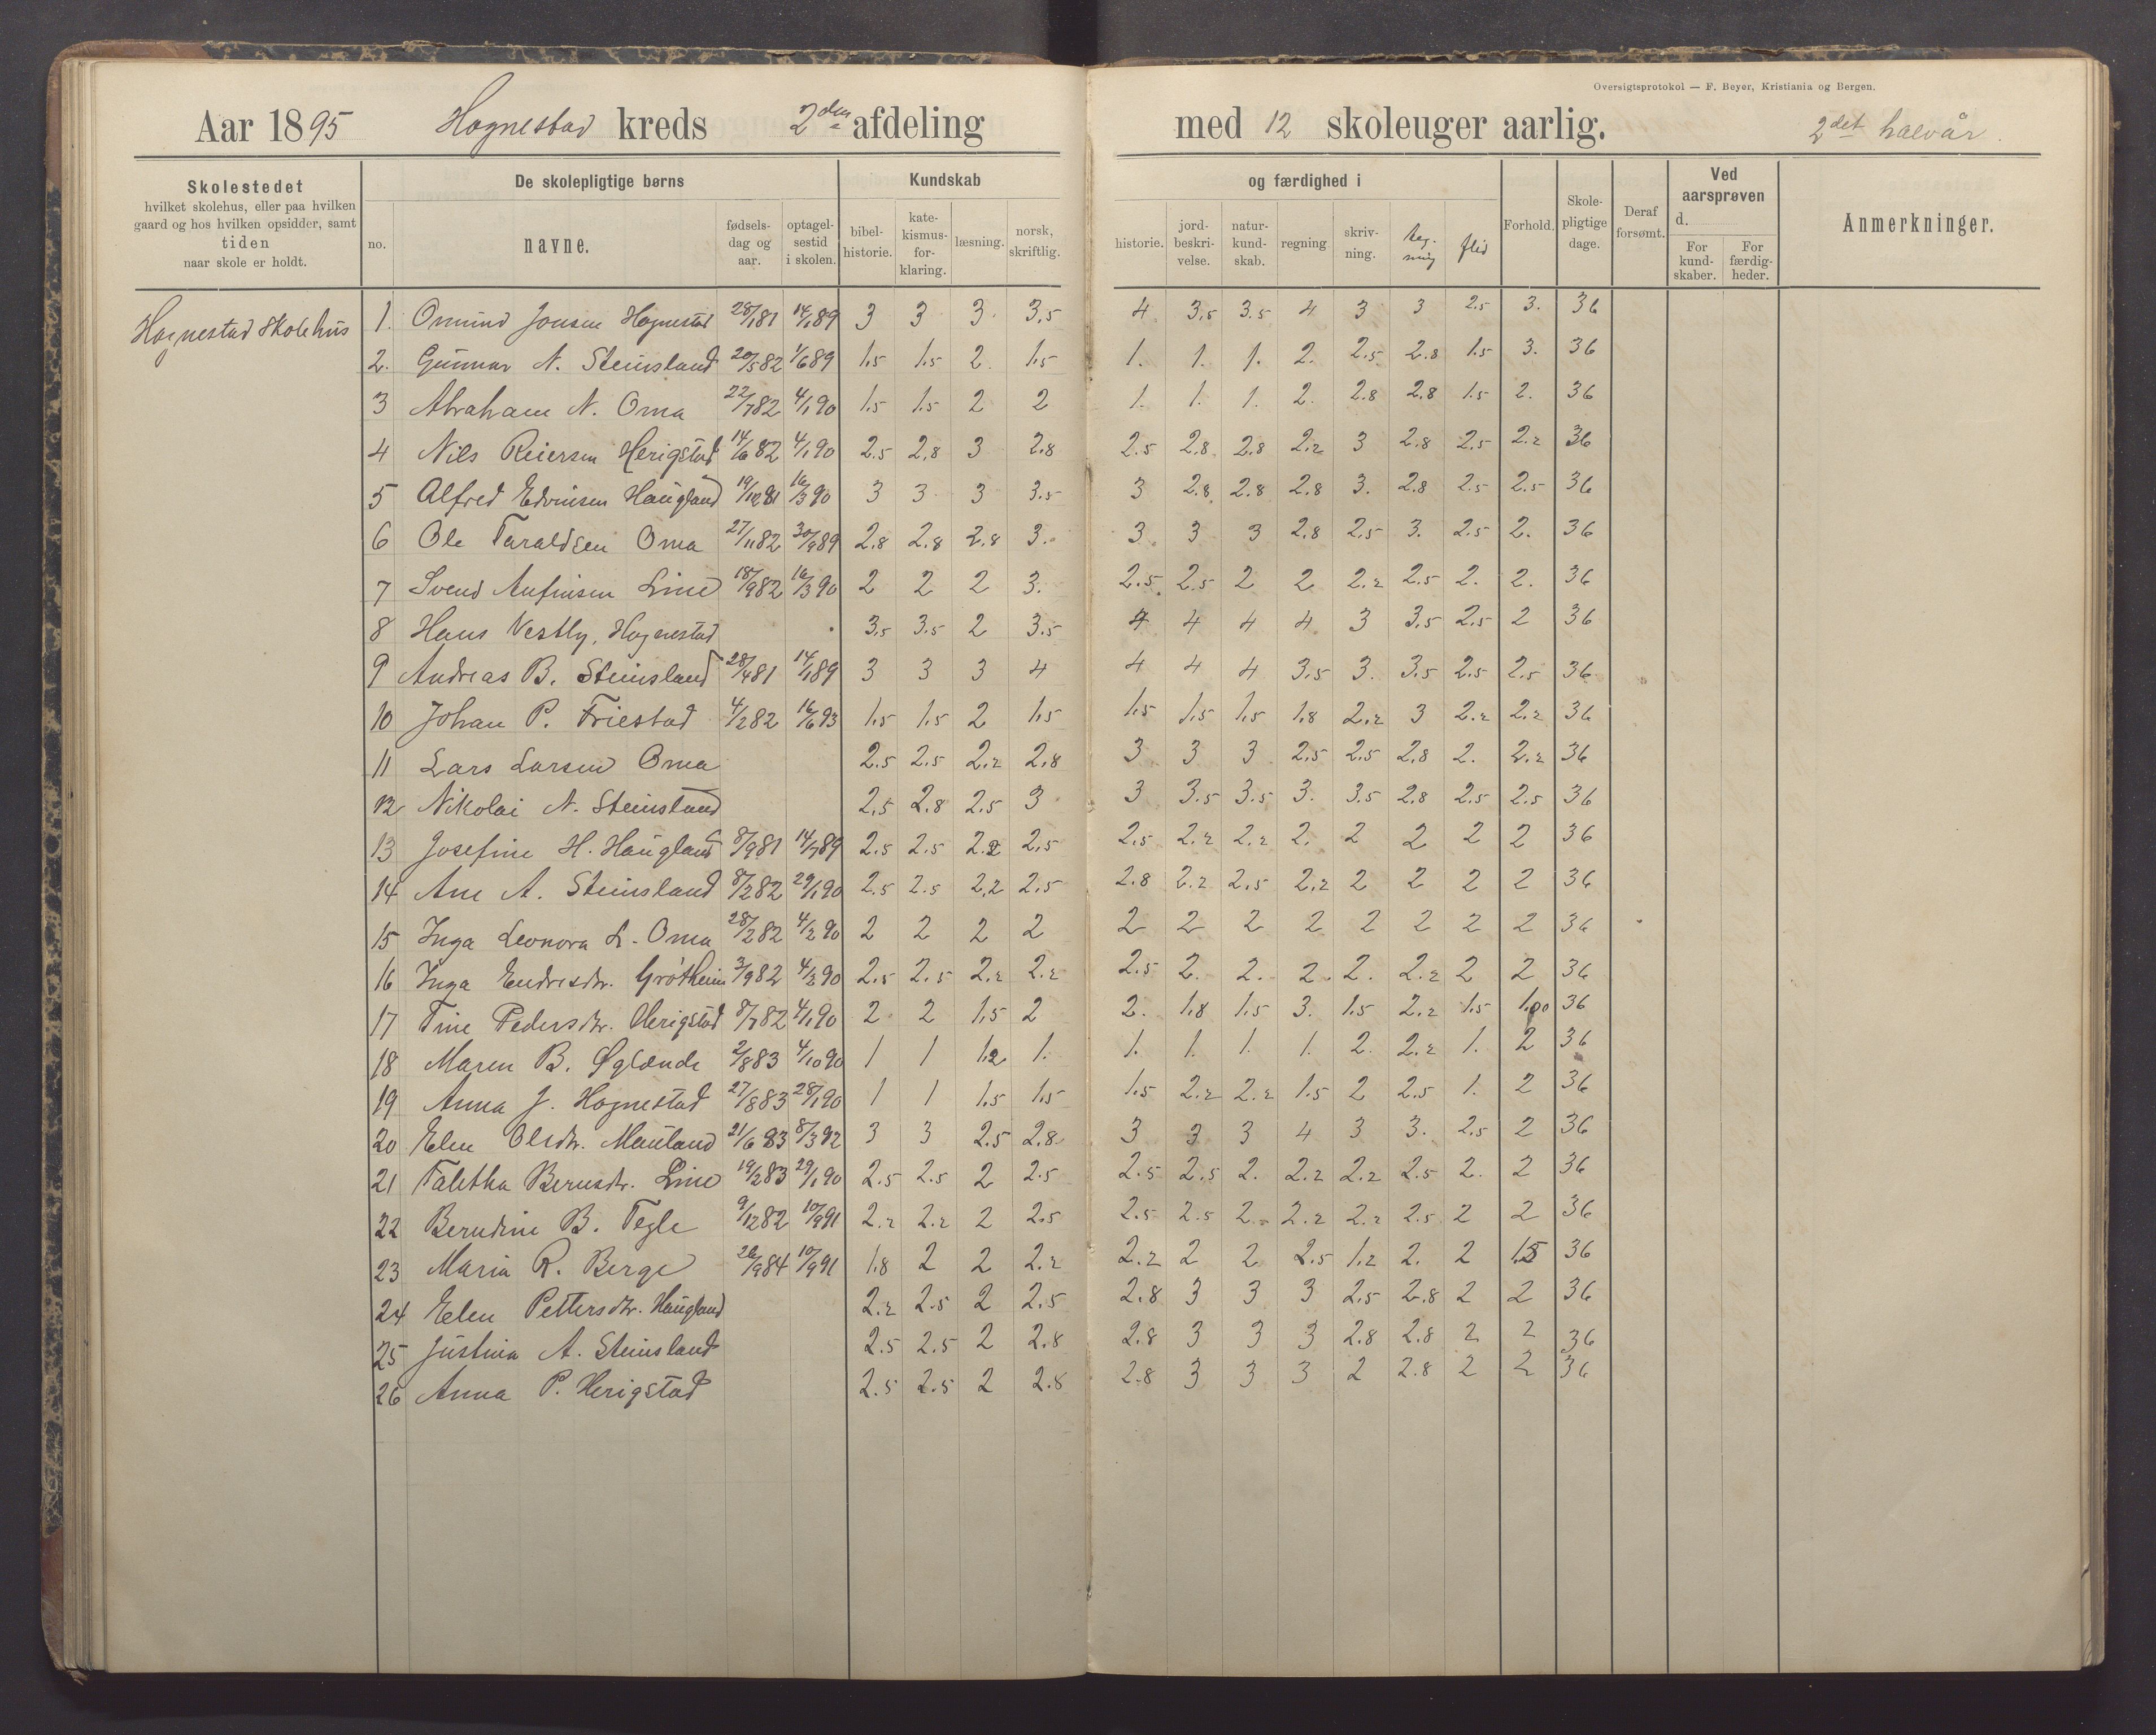 Oversigtsprotokol — F. Beyer, Kristiania og Bergen.
Aar 1895 Hognestad kreds 2den afdeling med 12 skoleuger aarlig. 2det halvår.
Skolestedet hvilket skolehus, eller paa hvilken gaard og hos hvilken opsidder, samt tiden naar skole er holdt.
De skolepligtige børns
no. navne. fødsels-dag og aar. optagel-sestid i skolen.
Kundskab og færdighed i
bibel-historie. kate-kismus-for-klaring. læsning. norsk, skriftlig. historie. jord-beskri-velse. natur-kund-skab. regning skriv-ning. Teg-ning flid
Forhold. Skole-pligtige dage. Deraf forsømt.
Ved aarsprøven d.
For kund-skaber. For færdig-heder.
Anmerkninger.
Hognestad Skolehus
1. Omund Jonsen Hognestad 28/1 81 14/1 89 3 3 3. 3,5 4 3,5 3.5 4 3 3 2.5 3. 36
2. Gunnar N. Steinsland 20/5 82 1/6 89 1,5 1.5 2. 1.5 1. 1. 1. 2. 2.5 2.8 1.5 3. 36
3 Abraham N. Oma 22/7 82 4/1 90 1.5 1.5 2 2 1. 1. 1. 2. 2.8 2.8 1.5 2. 36
4 Nils Reiersen Herigstad 14/6 82 4/1 90 2.5 2,8 3 2.8 2.5 2.8 2.8 2.2 3 2.8 2.5 2.2 36
5 Alfred Edvinsen Haugland 19/10 81 16/3 90 3 3 3 3.5 3 2.8 2.8 2.8 3. 2.8 2.5 2.5 36
6 Ole Taraldsen Oma 27/11 82 30/9 89 2.8 2.8 2.8 3. 3 3 3 2.8 2.5 3. 2.5 2. 36
7 Svend Aufinsen Line 18/9 82 16/3 90 2 2 2 3. 2.5 2.5 2 2 2.2 2.5 2. 2. 36
8 Hans Vestly, Hognestad 3.5 3.5 2 3.5 4 4 4 4 3 3.5 2.5 2 36
9 Andreas B. Steinsland 28/4 81 14/1 89 3 3 3 4 4 4 4 3.5 3. 3.5 2.5 2.5 36
10 Johan P. Friestad 4/2 82 16/6 93 1.5 1.5 2 1.5 1.5 1.5 1.5 1.8 2.2 3 2.2 2.2 36
11 Lars Larsen Oma 2.5 2.5 2.2 2.8 3 3 3 2.5 2.5 2.8 2. 2.2 36
12 Nikolai N. Steinsland 2.5 2.8 2.5 3 3 3.5 3.5 3. 3.5 2.8 2.5 2.5 36
13 Josefine H. Haugland 8/9 81 14/1 89 2.5 2.5 2.2 2.5 2.5 2.2 2.2 2. 2 2 2 2 36
14 Ane A. Steinsland 8/2 82 29/1 90 2.5 2.5 2,2 2.5 2.8 2.2 2.5 2.2 2 2 2 2 36
15 Inga Leonora L. Oma 28/2 82 4/2 90 2 2 2 2 2 2 2 2 2 2 2 2 36
16 Inga Endresdtr. Grótheim 3/9 82 4/2 90 2.5 2.5 2.2 2.2 2.5 2. 2. 2. 2. 2.2 2 2 36
17 Tine Pedersdtr. Herigstad 8/7 82 4/1 90 2 2 1,5 2 2. 1.8 1.5 3. 1.5 2.2 1.5 36
18 Maren B. Øglænde 2/8 83 4/10 90 1 1 1.2 1. 1. 1. 1. 1. 2. 2.2 1. 2 36
19 Anna J. Hognestad 27/8 83 28/1 90 1 1 1.5 1.5 1.5 2.2 2.2 1.5 2 2.5 1. 2 36
20 Elen Olsdtr. Mauland 21/6 83 8/3 92 3 3 2.5 2.8 3 3 3 4 3 3. 2.5 2 36
21 Talitha Bernsdtr. Line 19/2 83 29/1 90 2.5 2.5 2 2.5 2.5 2.5 2. 2.2 2.2 2.5 2. 2 36
22 Berndine B. Tegle 9/12 82 10/9 91 2.2 2.2 2 2.5 2.5 2.5 2. 2.2 2.2 2.5 2 2 36
23 Maria R. Berge 26/9 84 10/9 91 1.8 2 2 2.2 2.2 2 2 2.5 1.2 2. 2 1.5 36
24 Elen Pettersdtr. Haugland 2.2 2.5 2 2.5 2.8 3 3 3 2.5 2.8 2 2 36
25 Justina A. Steinsland 2.5 2.5 2 2.8 2.8 3 3 3 2.8 2.8 2 2 36
26 Anna P. Herigstad 2.5 2.5 2 2.8 2.8 3 3 3 2 2.8 2 2 36